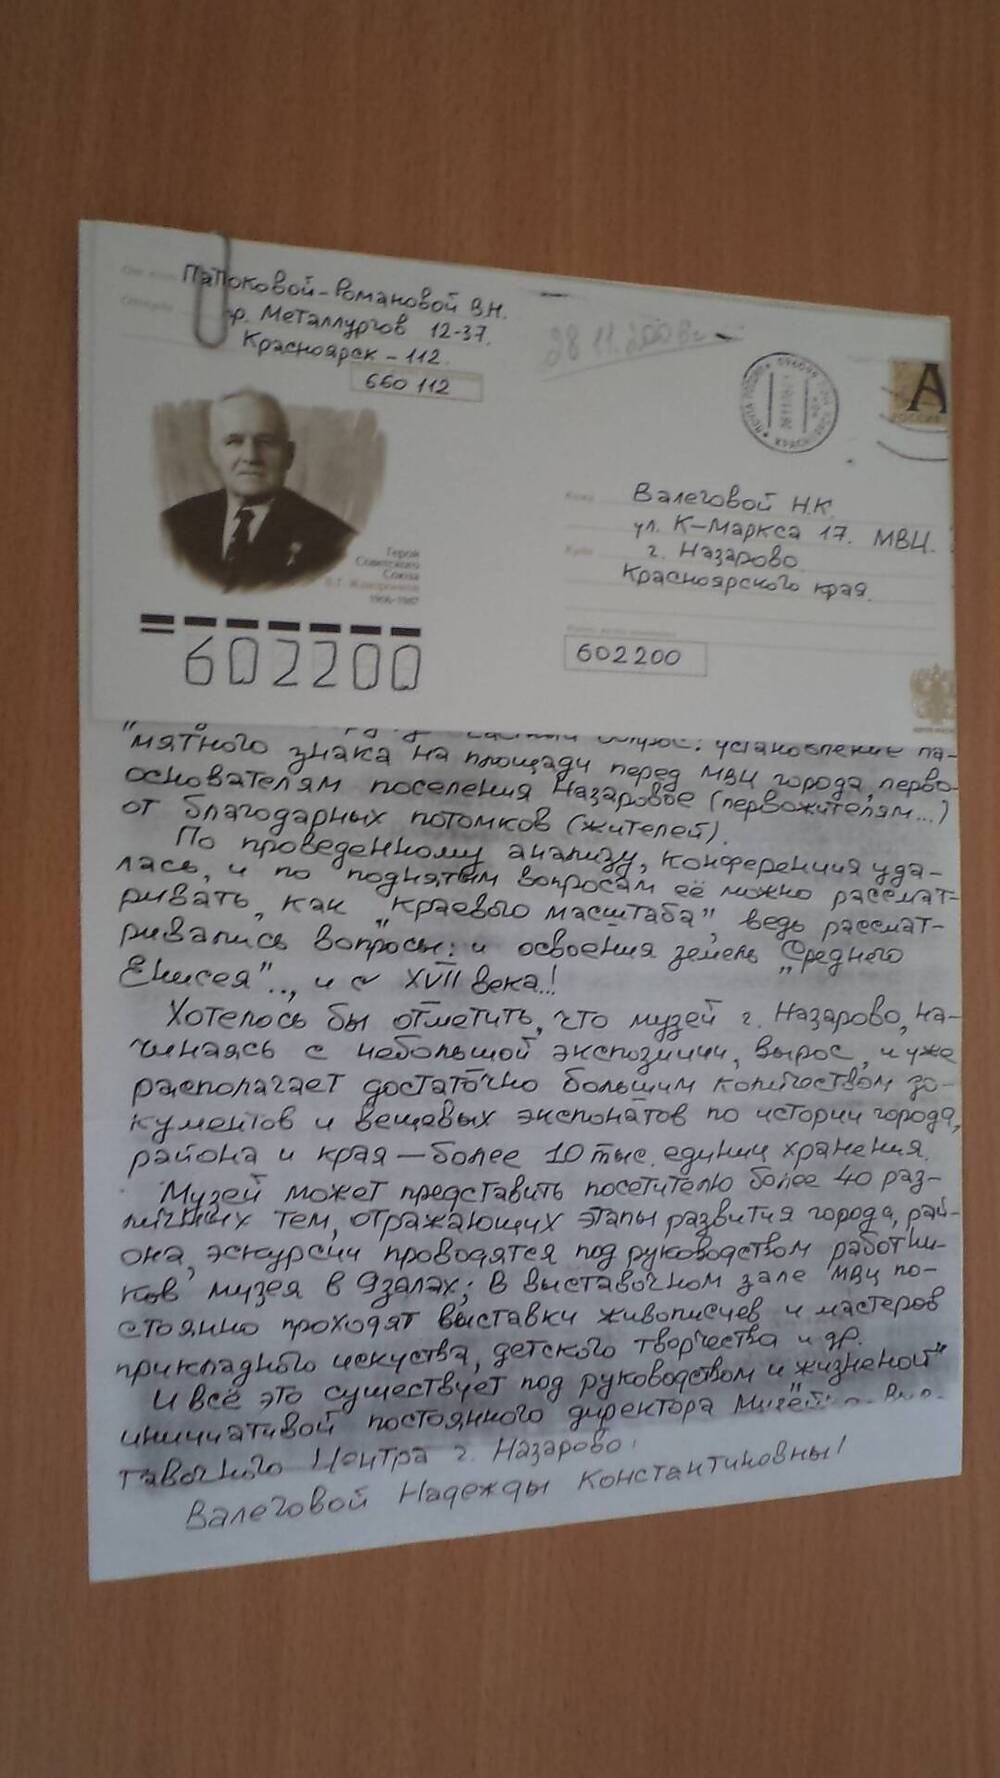 Папоковой-Романовой В.Н.
пр. Металлургов 12-37.
Красноярск - 112.
660 112
28.11.2008г.
А
РОССИЯ
Герой
Советского
Союза
1906-1987
Кому
Валеговой Н.К.
ул. К-Маркса 17. МВЦ.
Куда
г. Назарово
Красноярского края.
602200
602200
вопрос: установление па-
"мятного знака на площади перед МВЦ города, перво-
основателям поселения Назаровое (первожителям...)
от благодарных потомков (жителей).
По проведенному анализу, конференция уда-
лась, и по поднятым вопросам её можно рассмат-
ривать, как „краевого масштаба", ведь рассмат-
ривались вопросы: и освоения земель „Среднего
Енисея"..., и с XVII века..!
Хотелось бы отметить, что музей г. Назарово, на-
чинаясь с небольшой экспозиции, вырос, и уже
располагает достаточно большим количеством до-
кументов и вещевых экспонатов по истории города,
района и края — более 10 тыс. единиц хранения.
Музей может представить посетителю более 40 раз-
личных тем, отражающих этапы развития города, рай-
она, эскурсии проводятся под руководством работни-
ков музея в 9 залах; в выставочном зале МВЦ по-
стоянно проходят выставки живописцев и мастеров
прикладного искуства, детского творчества и др.
И всё это существует под руководством и "жизненой"
инициативой постоянного директора Музейно-Выс-
тавочного Центра г. Назарово:
Валеговой Надежды Константиновны!